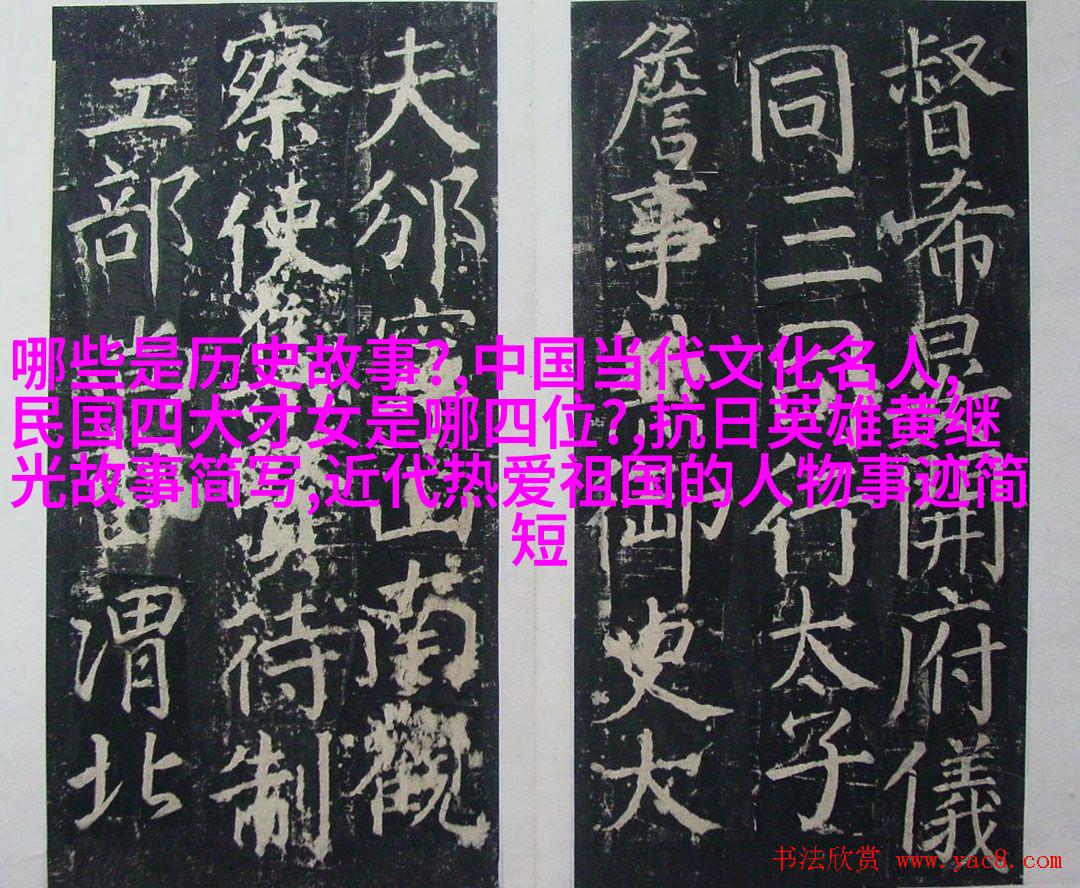 哪些是历史故事?,中国当代文化名人,
民国四大才女是哪四位?,抗日英雄黄继
光故事简写,近代热爱祖国的人物事迹简
短
督希開府儀
同三司行太子
詹事兼御史大
夫邠山南觀
察使待制
工部尚書渭北
书法欣赏 www.yac8.com